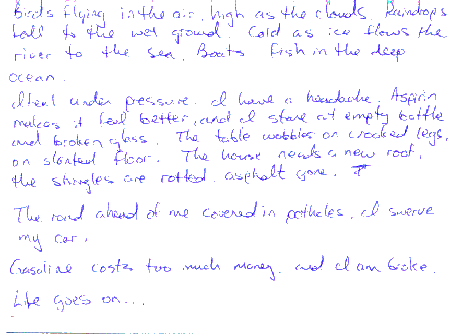 Birds flying in the air, high as the clouds. Raindrops
fall to the wet ground. Cold as ice flows the
river to the sea. Boats fish in the deep
ocean.
I feel under pressure. I have a headache. Aspirin
makes it feel better, and I stare at empty bottle
and broken glass. The table wobbles on crooked legs,
on slanted floor. The house needs a new roof,
the shingles are rotted, asphalt gone.
The road ahead of me covered in potholes. I swerve
my car.
Gasoline costs too much money, and I am broke.
Life goes on...